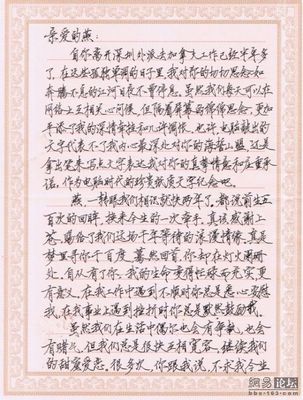 亲爱的燕：
自你离开深圳外派去加拿大工作已经半年多
了，在这些孤独单调的日子里，我对你的切切思念如
奔腾不息的江河日夜不曾停息。虽然我们每天可以在
网络上互相关心问候，但隔着屏幕的绵绵思念，更加
平添了我的深情牵挂和几许惆怅。也许电脑敲出的
文字代表不了我内心最深处对你的海誓山盟，还是
拿出笔来写点文字表达我对你的真挚情意和庄重承
诺，作为电脑时代的珍贵纸质文字纪念吧。
燕，一转眼我们相恋就快两年了，都说前生五
百次的回眸，换来今生的一次牵手，真该感谢上
苍，赐给了我们这场千年等待的浪漫情缘，真是
梦里寻你千百度，蓦然回首，你却在灯火阑珊
处。自从有了你，我的生命变得忙碌而充实更
有意义。在我工作中遇到不顺时你总是悉心安慰
我，在我事业上遇到挫折时你总是默默鼓励我。
虽然我们在生活中偶尔也会有争执，也会
有赌气，但我们总是很快互相宽容，继续我们
的甜蜜爱恋。很多次，你跟我说，不求我今生
网易论坛
bbs.163.com